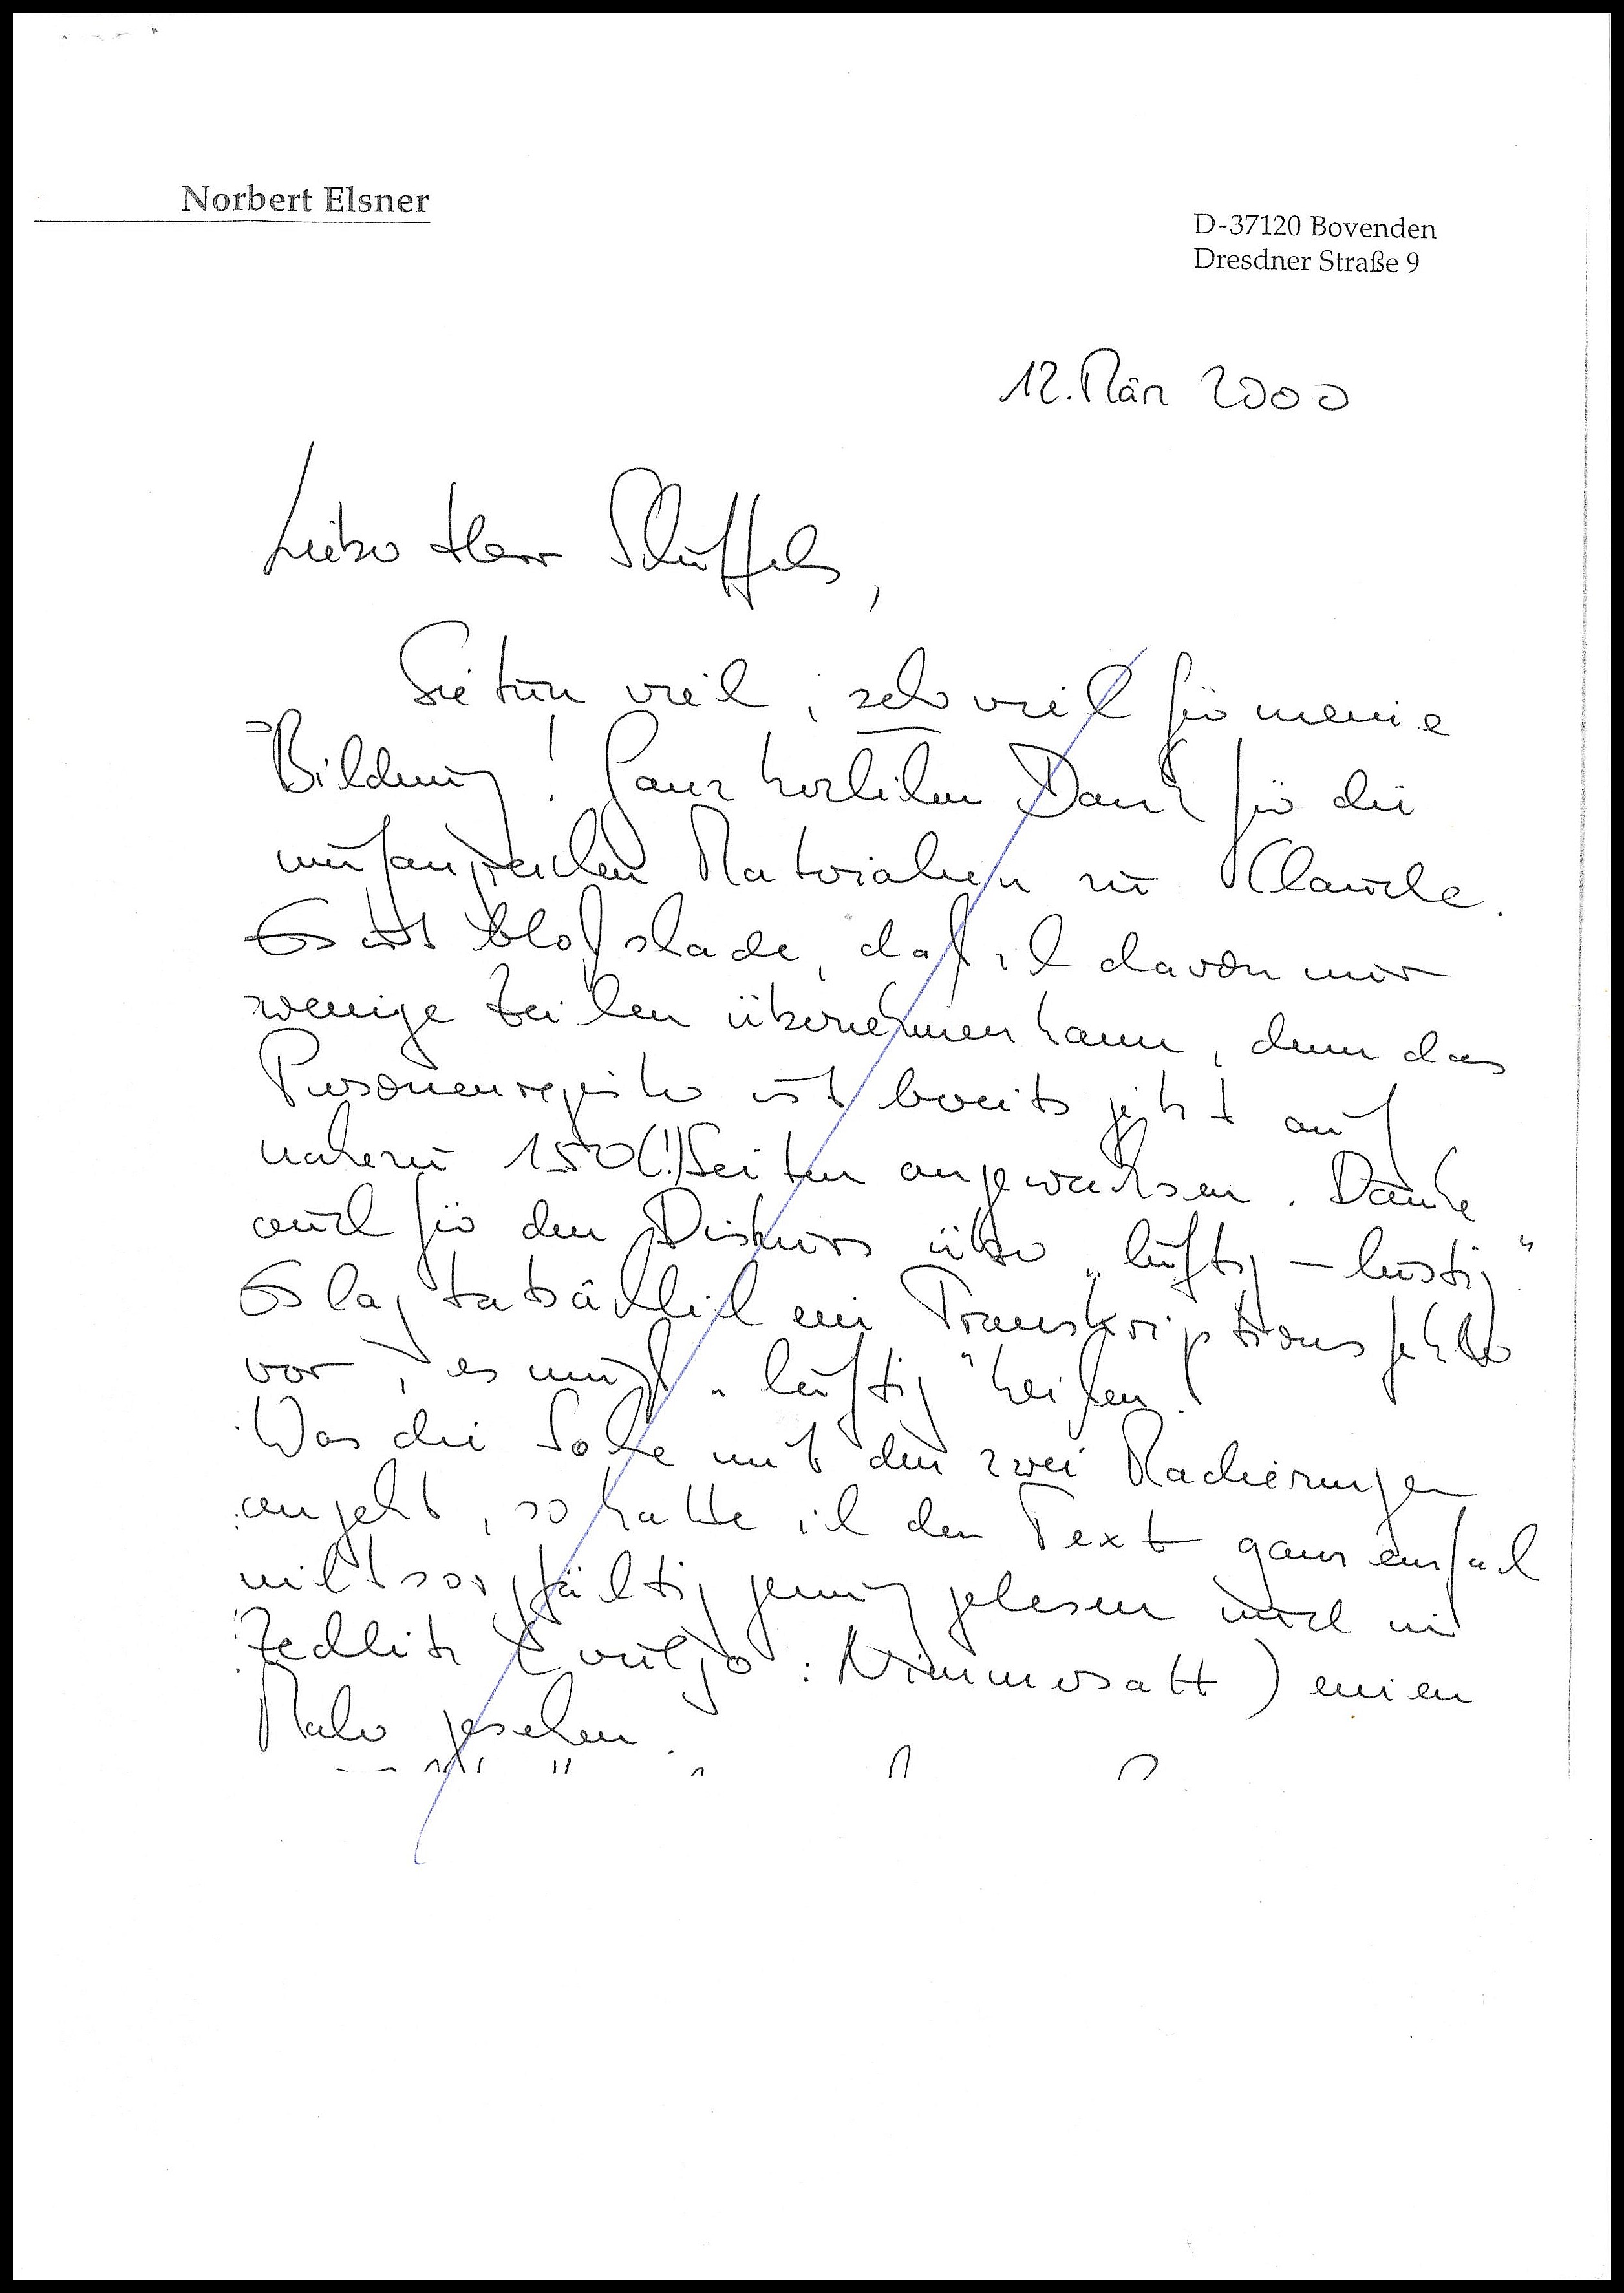 Norbert Elsner
D-37120 Bovenden
Dresdner Straße 9
12. März 2000
Lieber Herr Schüffels,
Sie tun viel, sehr viel für meine
Bildung! Ganz herzlichen Dank für die
umfangreichen Materialien zu Claude.
Es ist bloß schade, daß ich davon nur
wenige Zeilen übernehmen kann, denn das
Personenregister ist bereits jetzt auf
nahezu 150(!) Seiten angewachsen. Danke
auch für den Diskurs über „luftig – lustig“.
Es lag tatsächlich ein Transkriptionsfehler
vor, es muß „luftig“ heißen!
Was die Sache mit den zwei Radierungen
angeht, so hatte ich den Text ganz einfach
nicht sorgfältig genug gelesen und in
Zedlitz (vulgo: Nimmersatt) einen
Maler gesehen.